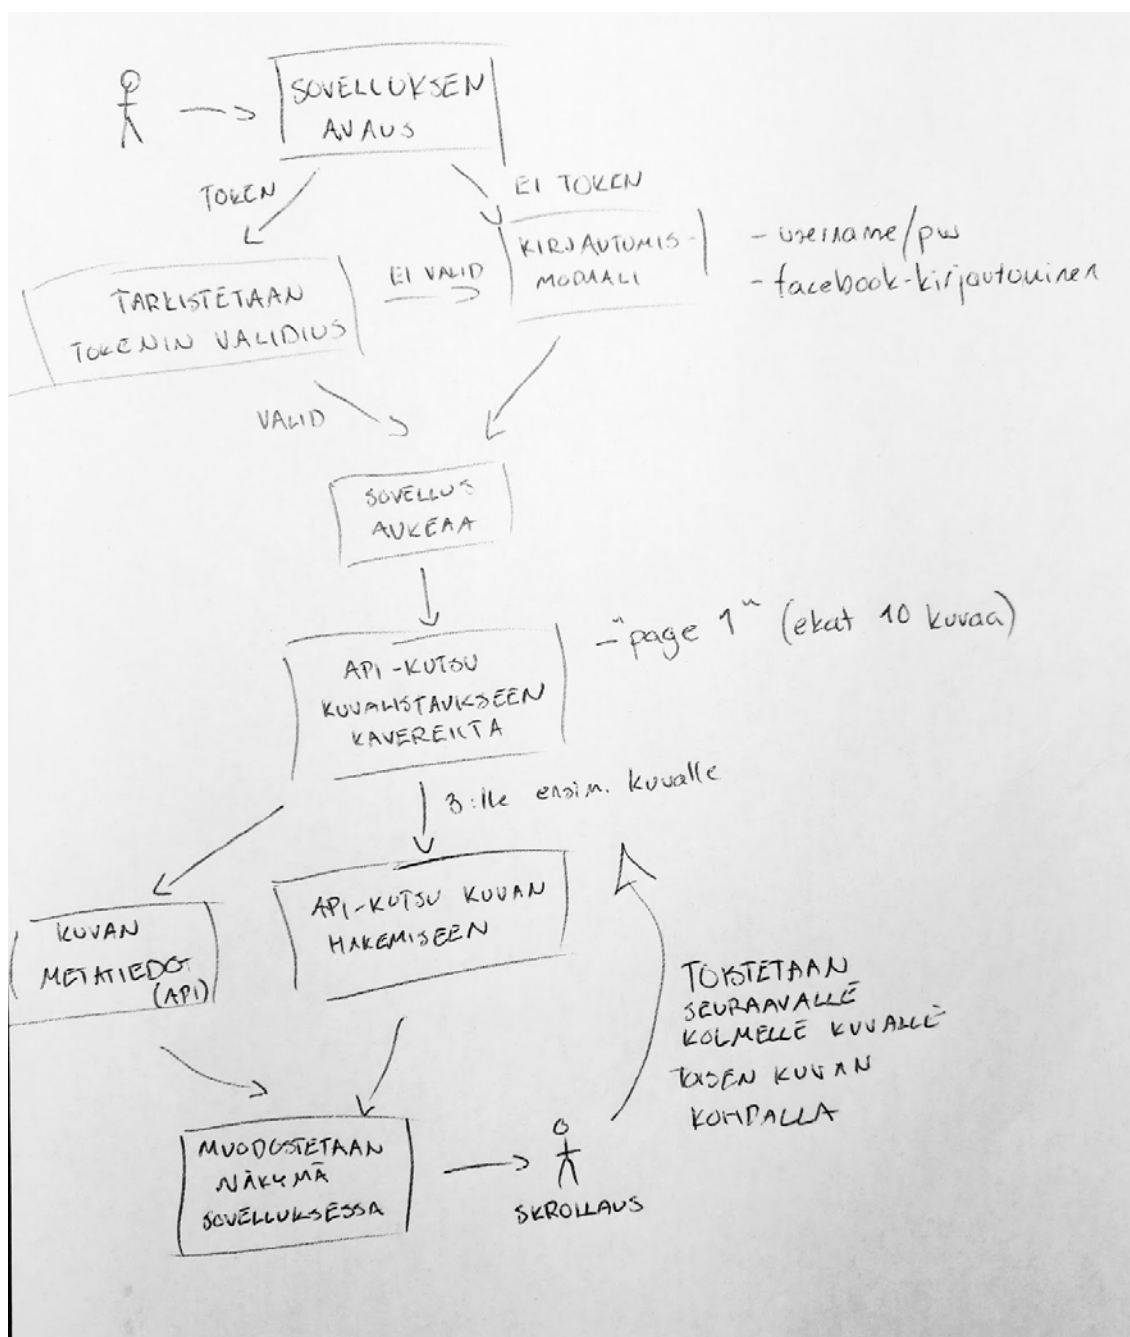 SOVELLUKSEN
AVAUS
TOKEN
EI TOKEN
KIRJAUTUMIS-
MODAALI
- username/pw
- facebook-kirjautuminen
EI VALID
TARKISTETAAN
TOKENIN VALIDIUS
VALID
SOVELLUS
AUKEAA
API-KUTSU
KUVALISTAUKSEEN
KAVEREILTA
- "page 1" (ekat 10 kuvaa)
3:lle ensim. kuvalle
KUVAN
METATIEDOT
(API)
API-KUTSU KUVAN
HAKEMISEEN
TOISTETAAN
SEURAAVALLE
KOLMELLE KUVALLE
TOISEN KUVAN
KOHDALLA
MUODOSTETAAN
NÄKYMÄ
SOVELLUKSESSA
SKROLLAUS